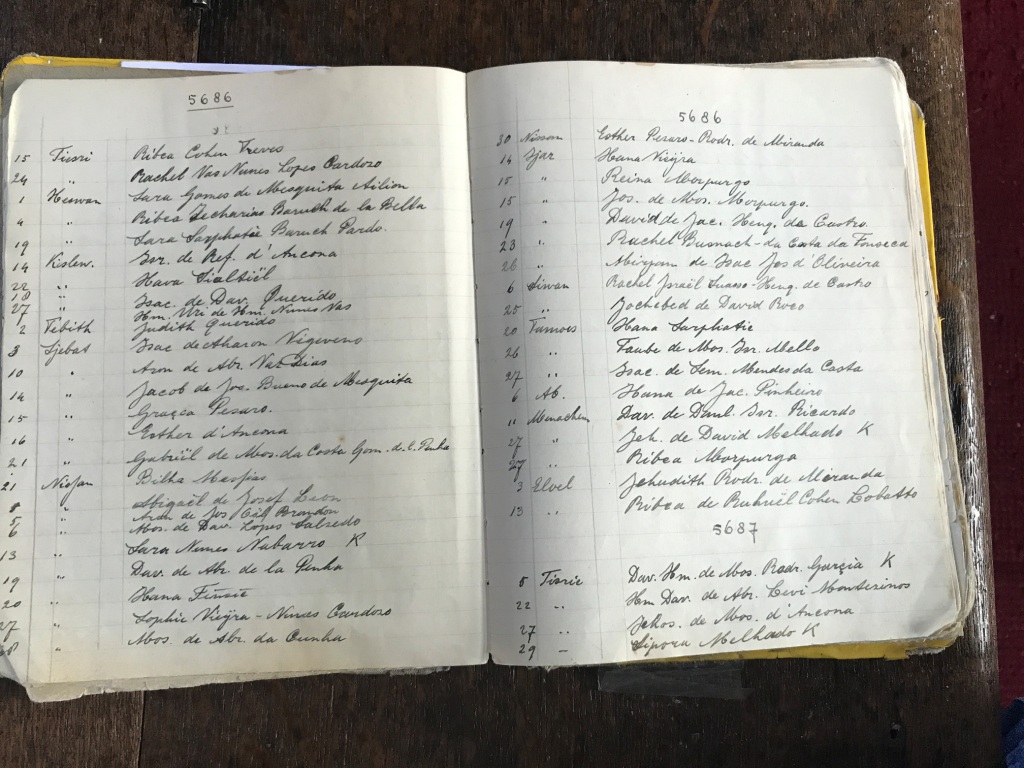 5686
15 Tisri Ribca Cohen Treves
24 " Rachel Vas Nunes Lopes Cardozo
1 Heswan Sara Gomes de Mesquita Ailion
4 " Ribca Zecharias Baruch de la Bella
19 " Sara Sarphatie Baruch Pardo.
14 Kislew. Isr. de Ref. d'Ancona
22 " Hava Sialtiël
18 " Isac. de Dav. Querido
27 " Hm. Uri de Hm. Nunes Vas
2 Tebith Judith Querido
3 Sjebat Isac de Aharon Nigeveno
10 " Aron de Abr. Vas Dias
14 " Jacob de Jos. Bueno de Mesquita
15 " Gracia Pesaro.
16 " Esther d'Ancona
21 " Gabriël de Mos. da Costa Gom. d. l. Penha
21 Nissan Bilha Messias
" Abigaël de Josef Leon
5 " de Jos Gil Brandon
6 " Mos. de Dav. Lopes Salzedo
13 " Sara Nunes Nabarro K
" Dav. de Abr. de la Penha
19 " Hana Finsie
20 " Sophie Vieÿra - Nunes Cardozo
27 " Mos. de Abr. da Cunha
5686
30 Nissan Esther Pesaro - Rodr. de Miranda
14 Ijar Hana Vieÿra
15 " Reina Morpurgo
15 " Jos. de Mos. Morpurgo.
19 " David de Jac. Heng. da Castro
23 " Rachel Busnach - da Costa da Fonseca
26 " Miryam de Isac Jos d'Oliveira
6 Siwan Rachel Israël Suasso - Heng. de Castro
25 " Jochebed de David Roco
20 Tamoes Hana Sarphatie
26 " Taube de Mos. Isr. Mello
27 " Isac. de Sem. Mendes da Costa
6 Ab. Hana de Jac. Pinheiro
11 Menachem Dav. de Danl. Isr. Ricardo
27 " Jeh. de David Melhado K
27 " Ribca Morpurgo
3 Elvel Jehudith Rodr. de Miranda
13 " Ribca de Rubiël Cohen Lobatto
5687
5 Tisrie Dav. Hm. de Mos. Rodr. Garçia K
22 " Hm Dav. de Abr. Levi Montezinos
27 " Jehos. de Mos. d'Ancona
29 - Sipora Melhado K